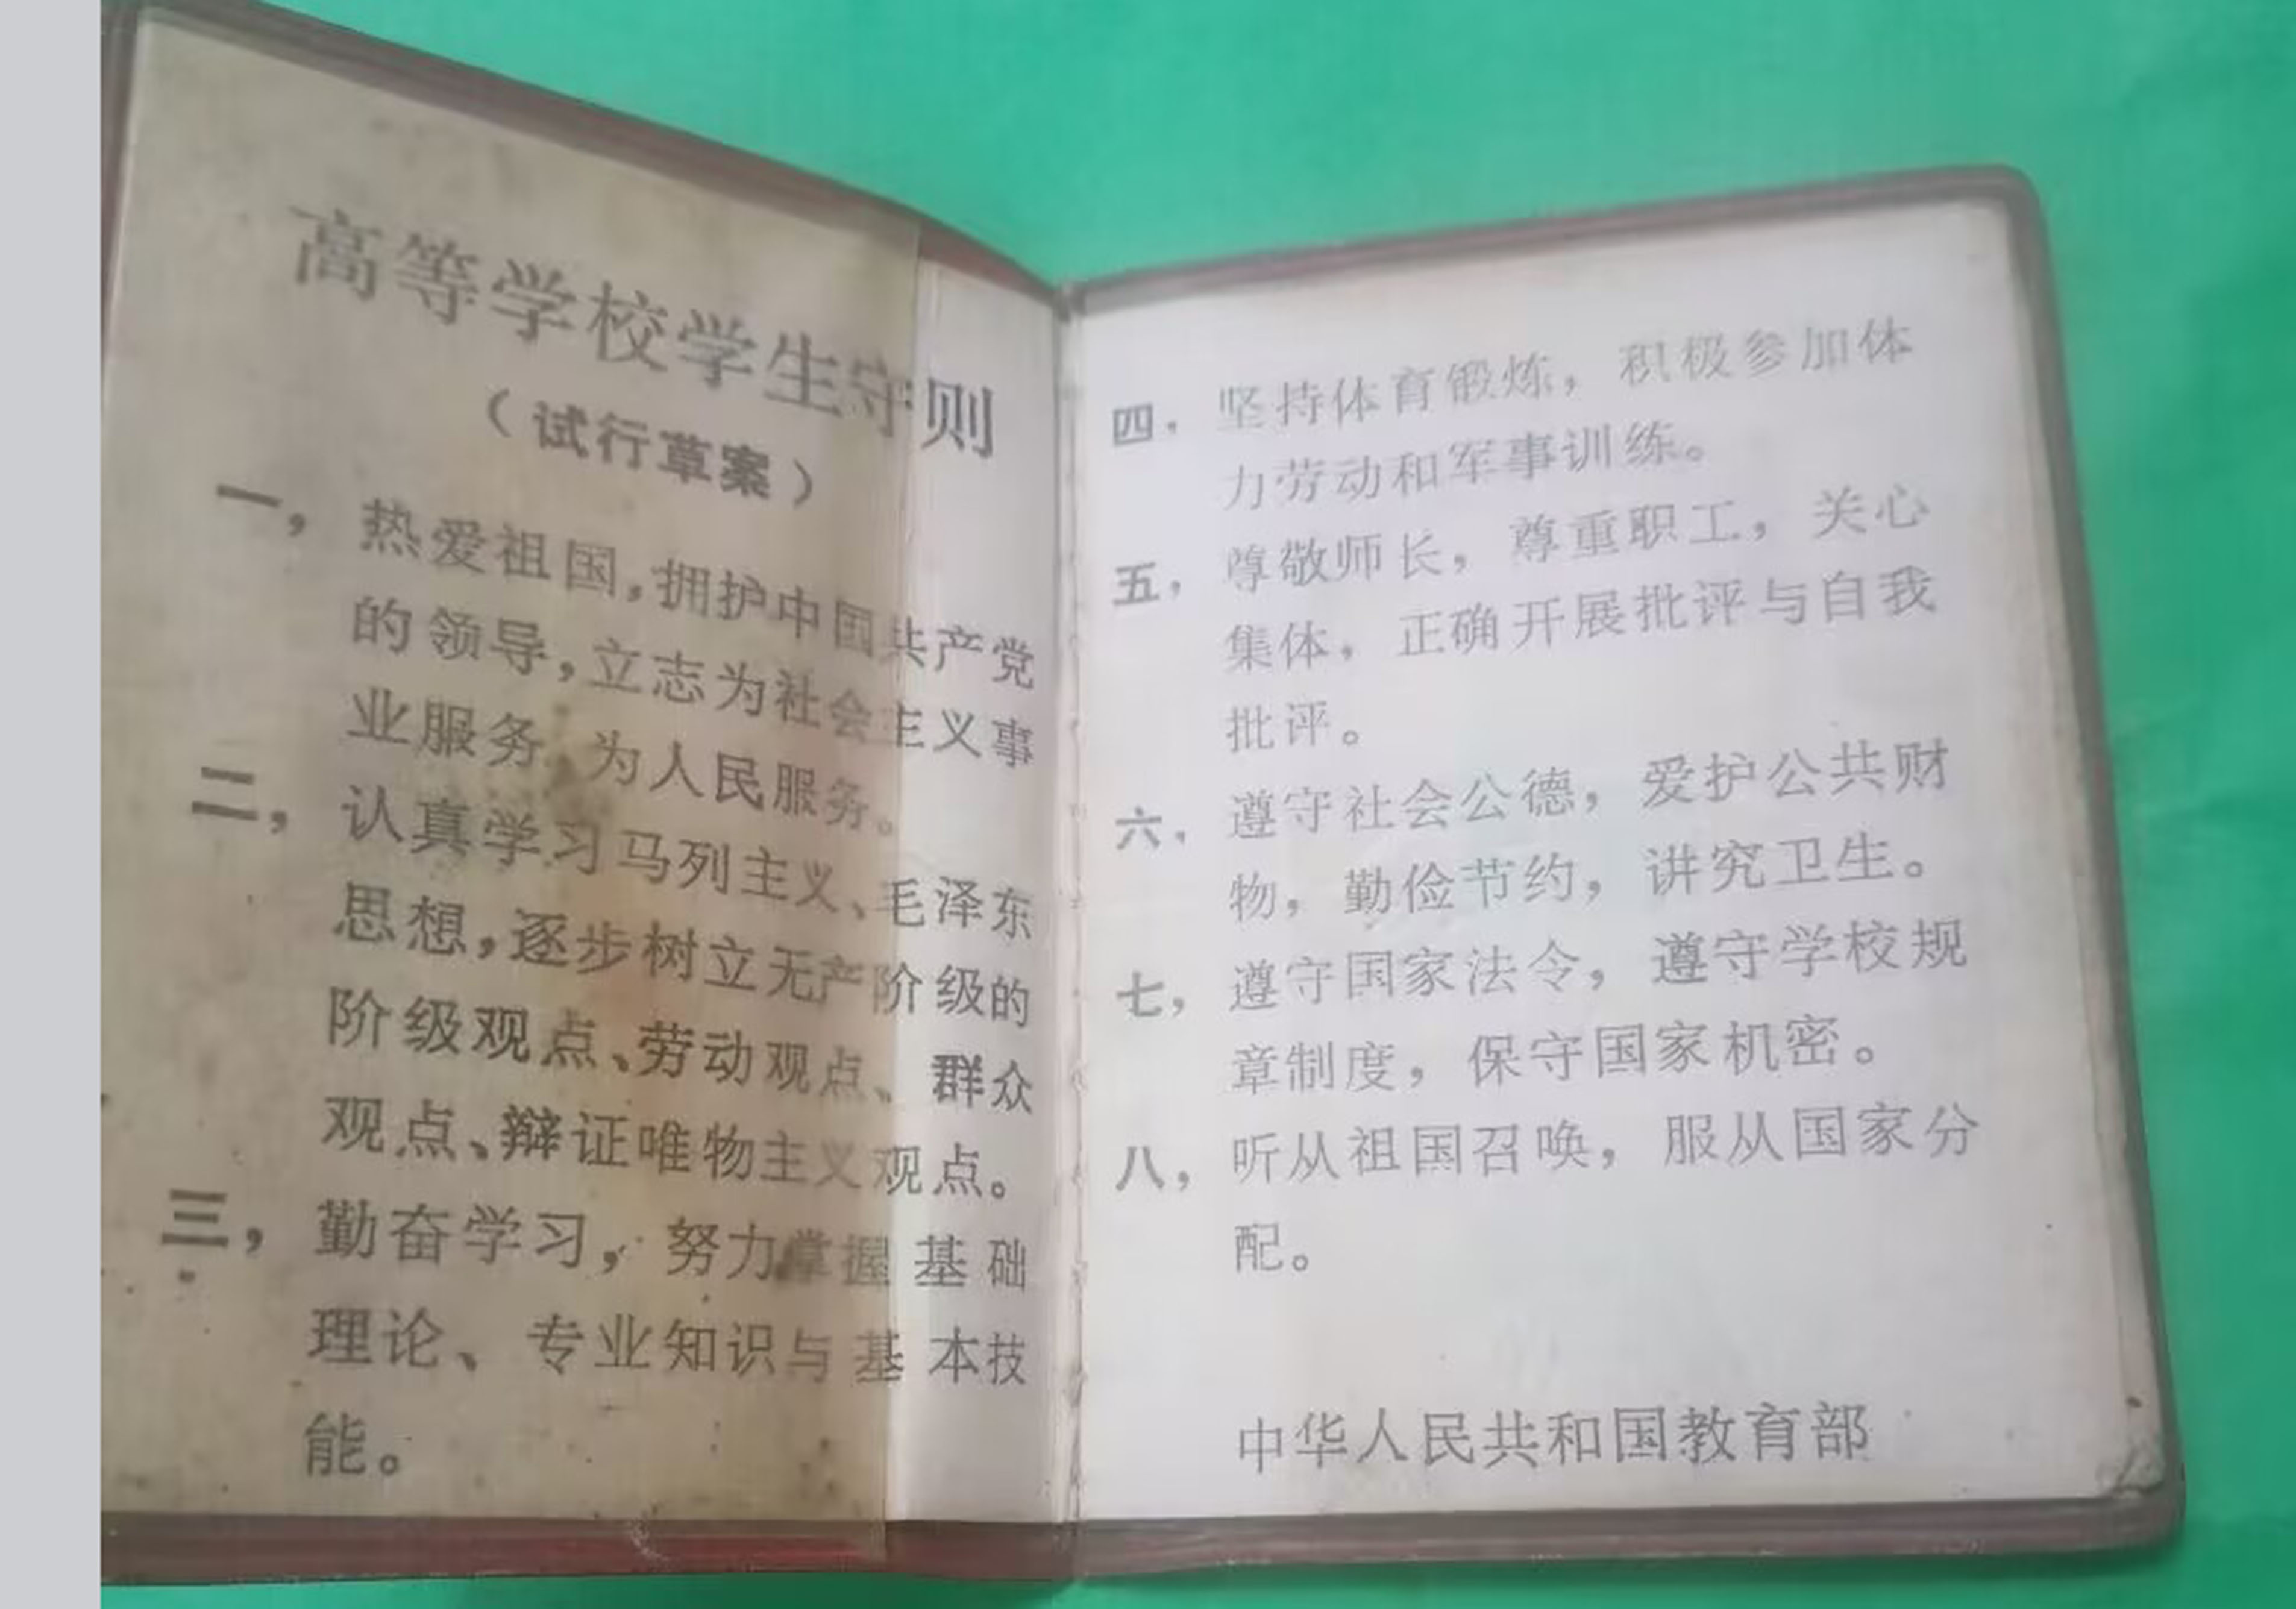 高等学校学生守则
（试行草案）
一，热爱祖国，拥护中国共产党
的领导，立志为社会主义事
业服务，为人民服务。
二，认真学习马列主义、毛泽东
思想，逐步树立无产阶级的
阶级观点、劳动观点、群众
观点、辩证唯物主义观点。
三，勤奋学习，努力掌握基础
理论、专业知识与基本技
能。
四，坚持体育锻炼，积极参加体
力劳动和军事训练。
五，尊敬师长，尊重职工，关心
集体，正确开展批评与自我
批评。
六，遵守社会公德，爱护公共财
物，勤俭节约，讲究卫生。
七，遵守国家法令，遵守学校规
章制度，保守国家机密。
八，听从祖国召唤，服从国家分
配。
中华人民共和国教育部